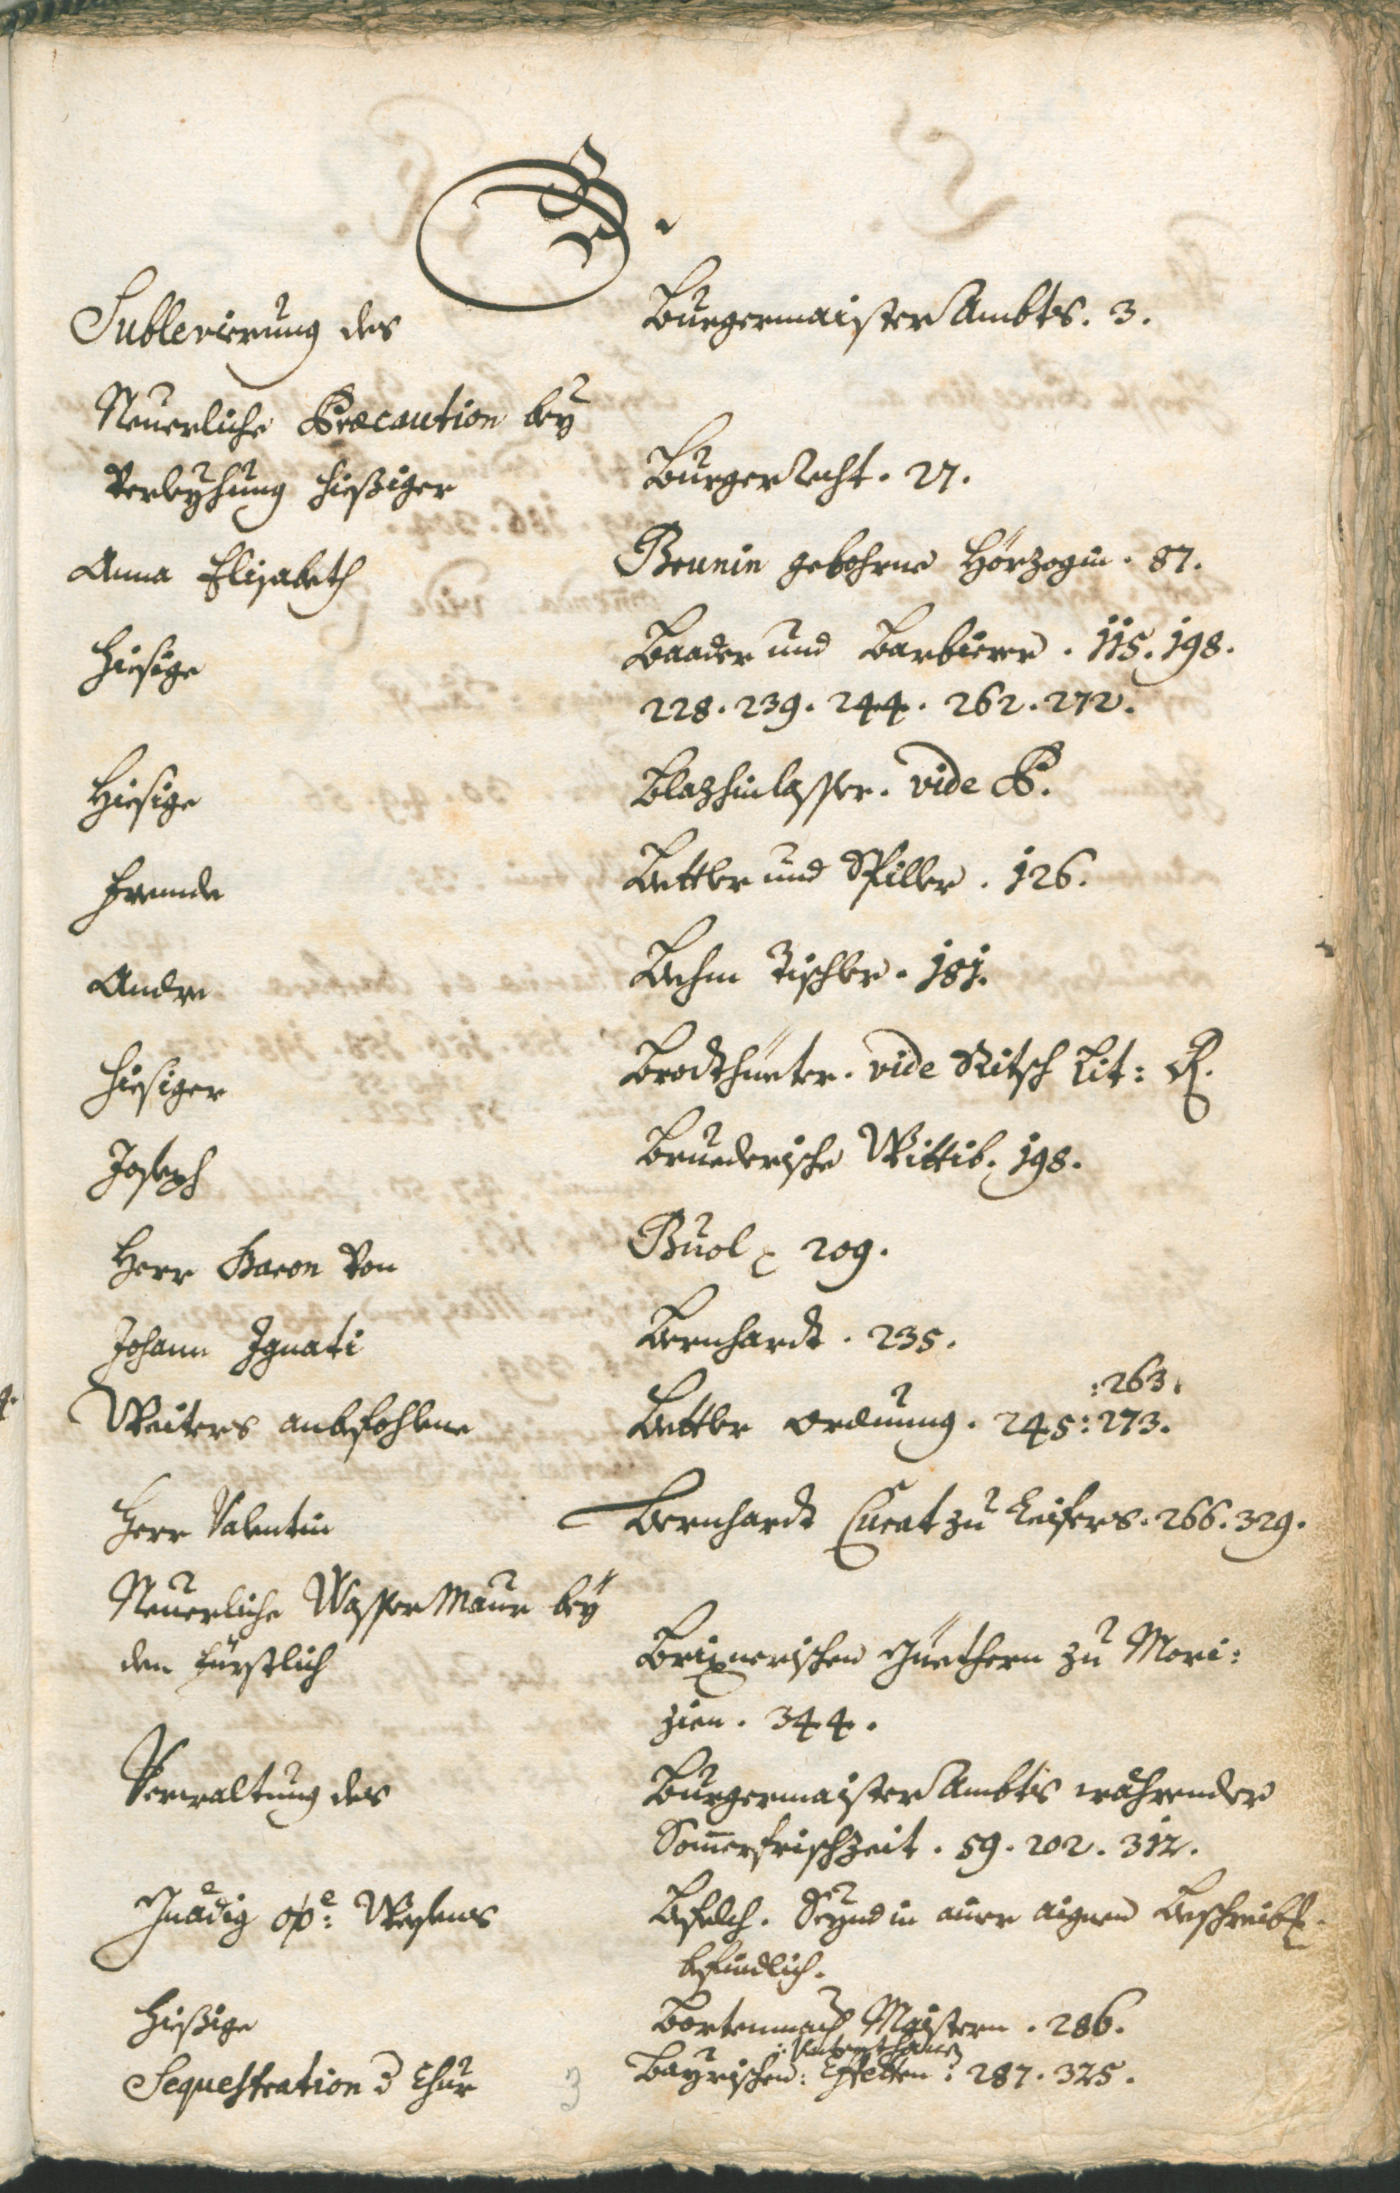 B.
Sublevierung des Burgermaister Ambts. 3.
Neuerliche Præcaution bey
Verleyhung hießiger Burger Recht. 27.
Anna Elisabeth Brunin gebohrne Hörzogin. 87.
Hiesige Baader und Barbierer. 115. 198.
228. 239. 244. 262. 272.
Hiesige Blazhinlasser. vide P.
Fremde Bettler und Spiller. 126.
Andre Behm Tischler. 181.
Hiesiger Brodthüeter. vide Ritsch Lit: R.
Joseph Bruederische Wittib. 198.
Herr Baron von Buol 209.
Johann Ignati Bernhardt. 235.
:263.
Weiters anbefohlene Bettler Ordnung. 245: 273.
Herr Valentin Bernhardt Curat zu Leifers. 266. 329.
Neuerliche Wasser Maur bey
den fürstlich Brixnerischen Güethern zu Mori:
zien. 344.
Verwaltung des Burgermaister Ambts währender
Som̄erfrischzeit. 59. 202. 312.
Gnädig Wesens Befelch. Seynd in ainer aignen Beschreib.
befindlich.
Hießige Bortenmach Maistern. 286.
:Unterthanen
Sequestration d Chur Bayrischen: Effetten: 287. 325.
3